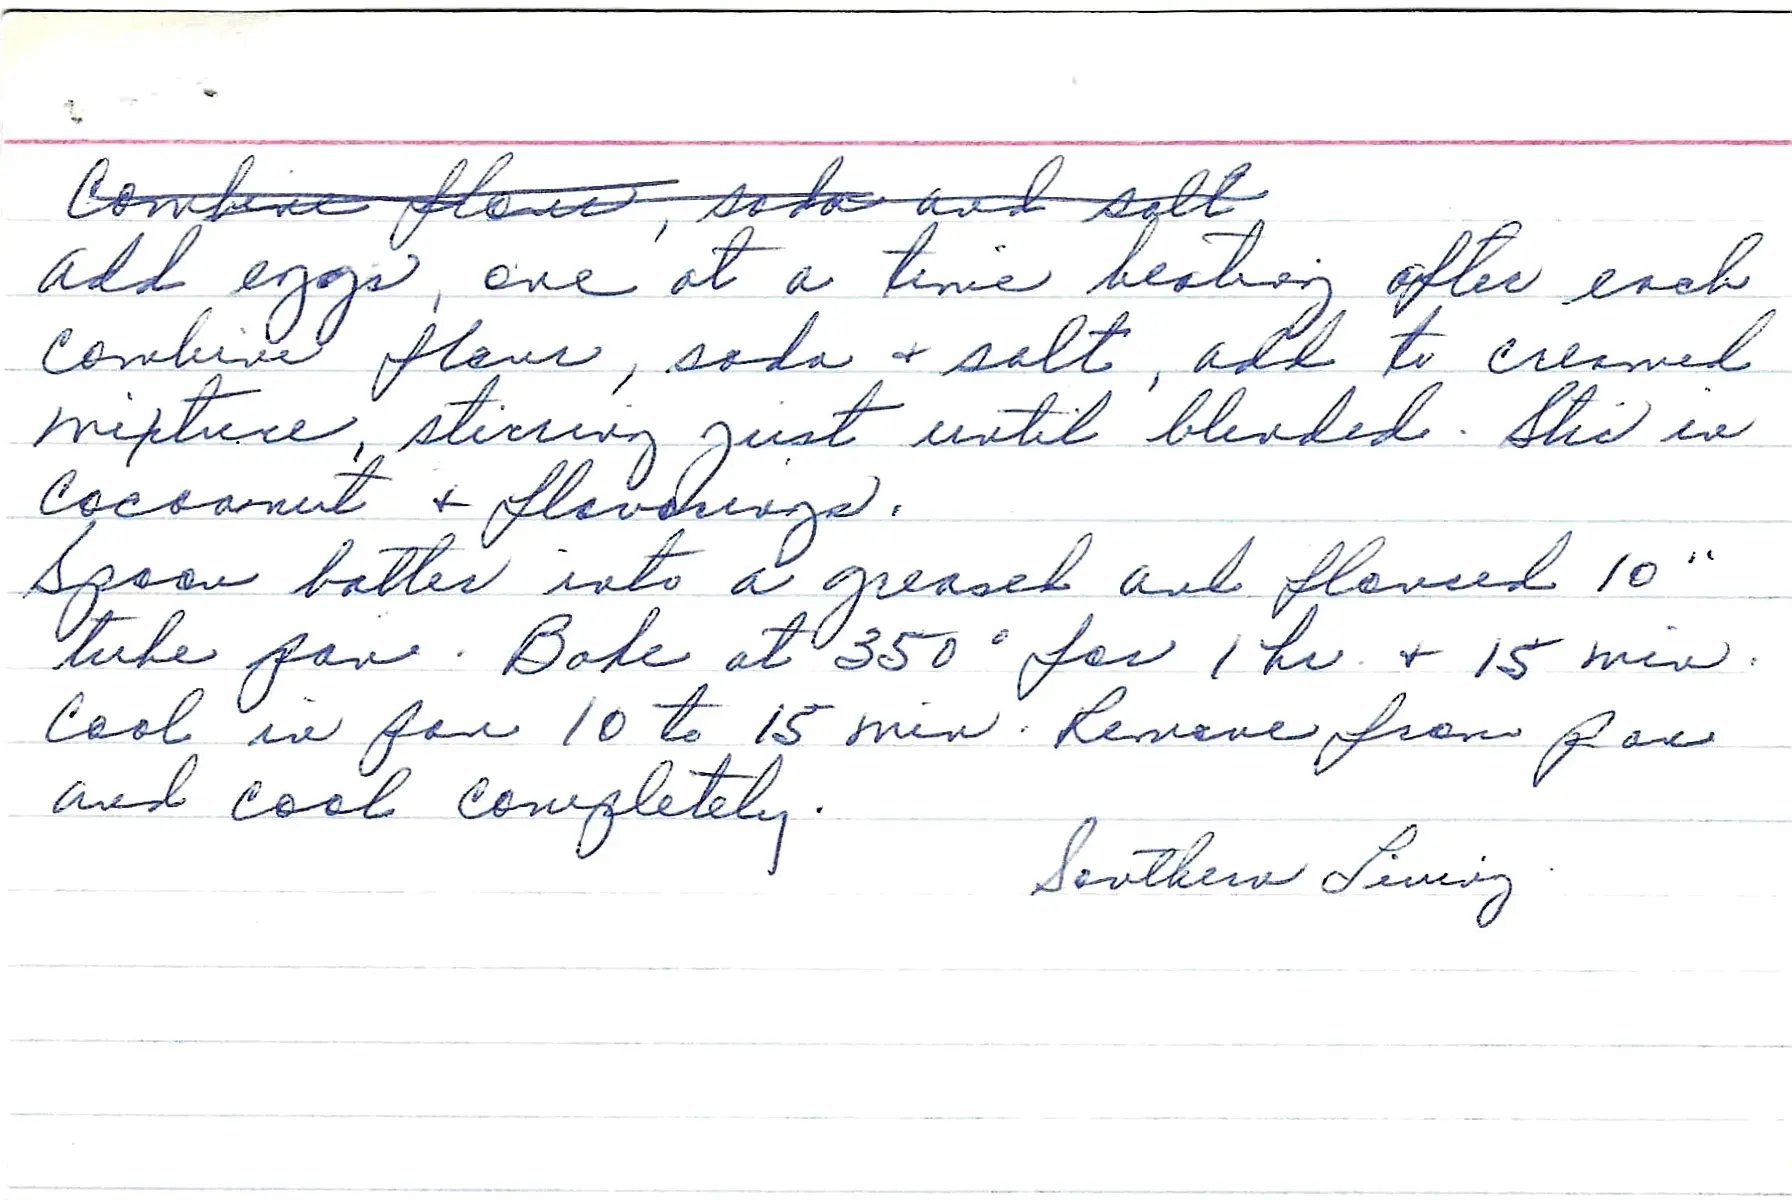 Combine flour, soda and salt
add eggs, one at a time beating after each
combine flour, soda + salt, add to creamed
mixture, stirring just until blended. Stir in
cocoanut + flavorings.
Spoon batter into a greased and floured 10"
tube pan. Bake at 350° for 1 hr. + 15 min.
Cool in pan 10 to 15 min. Remove from pan
and cool completely.
Southern Living